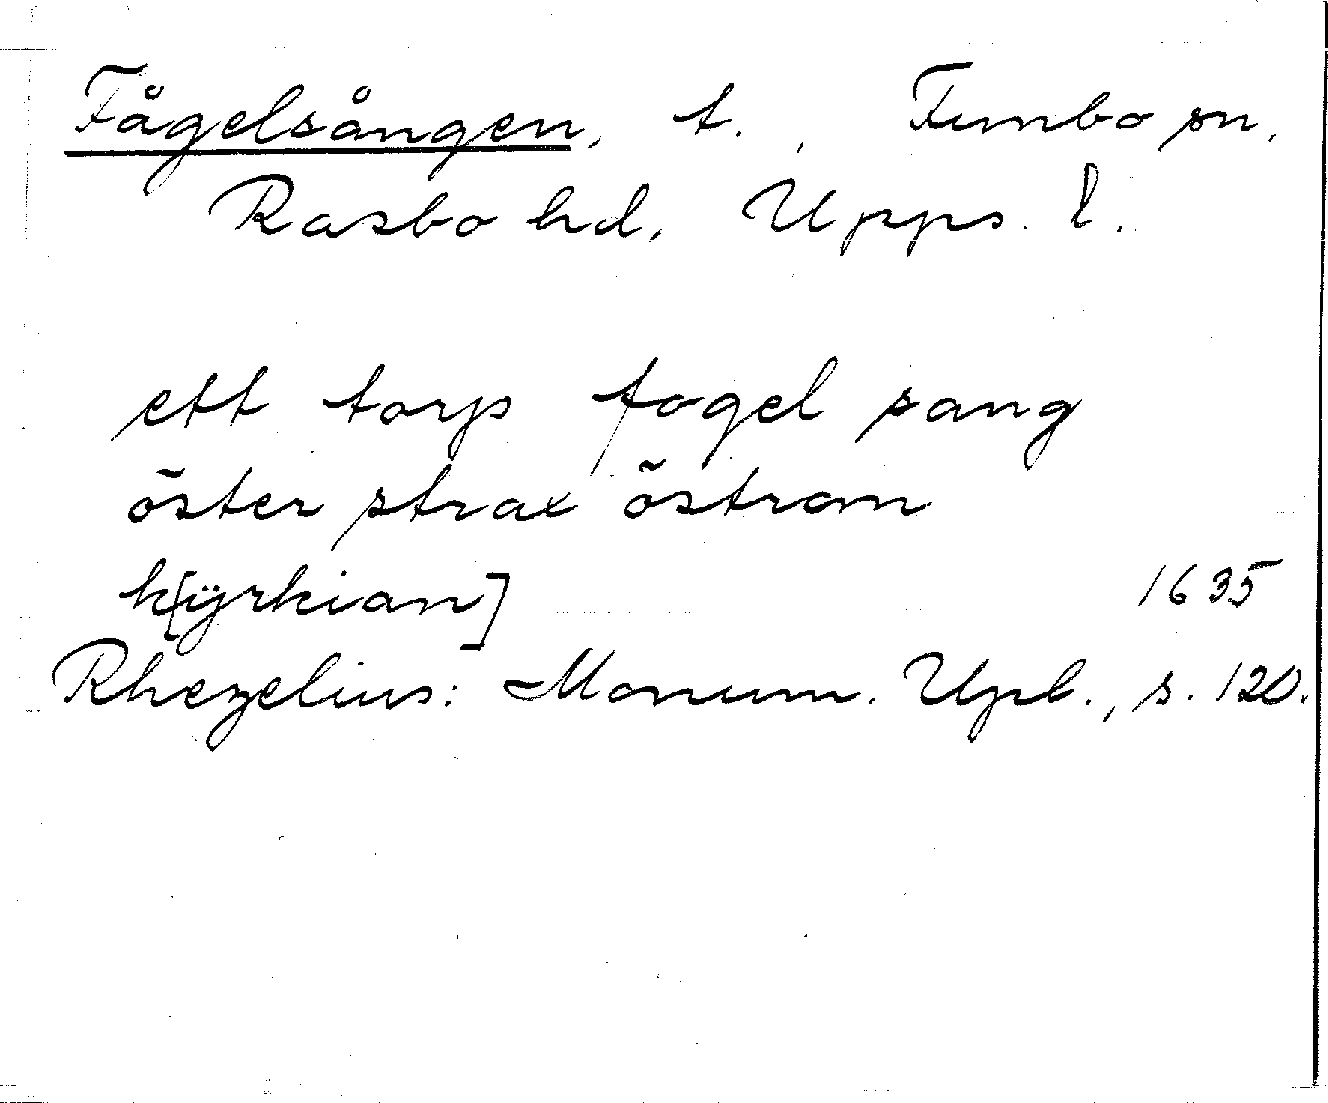 Fågelsången, t., Funbo sn,
Rasbo hd, Upps. l.
ett torp fogel sang
öster strax östram
k[ÿrkian] 1635
Rhezelius: Monum. Upl., s. 120.